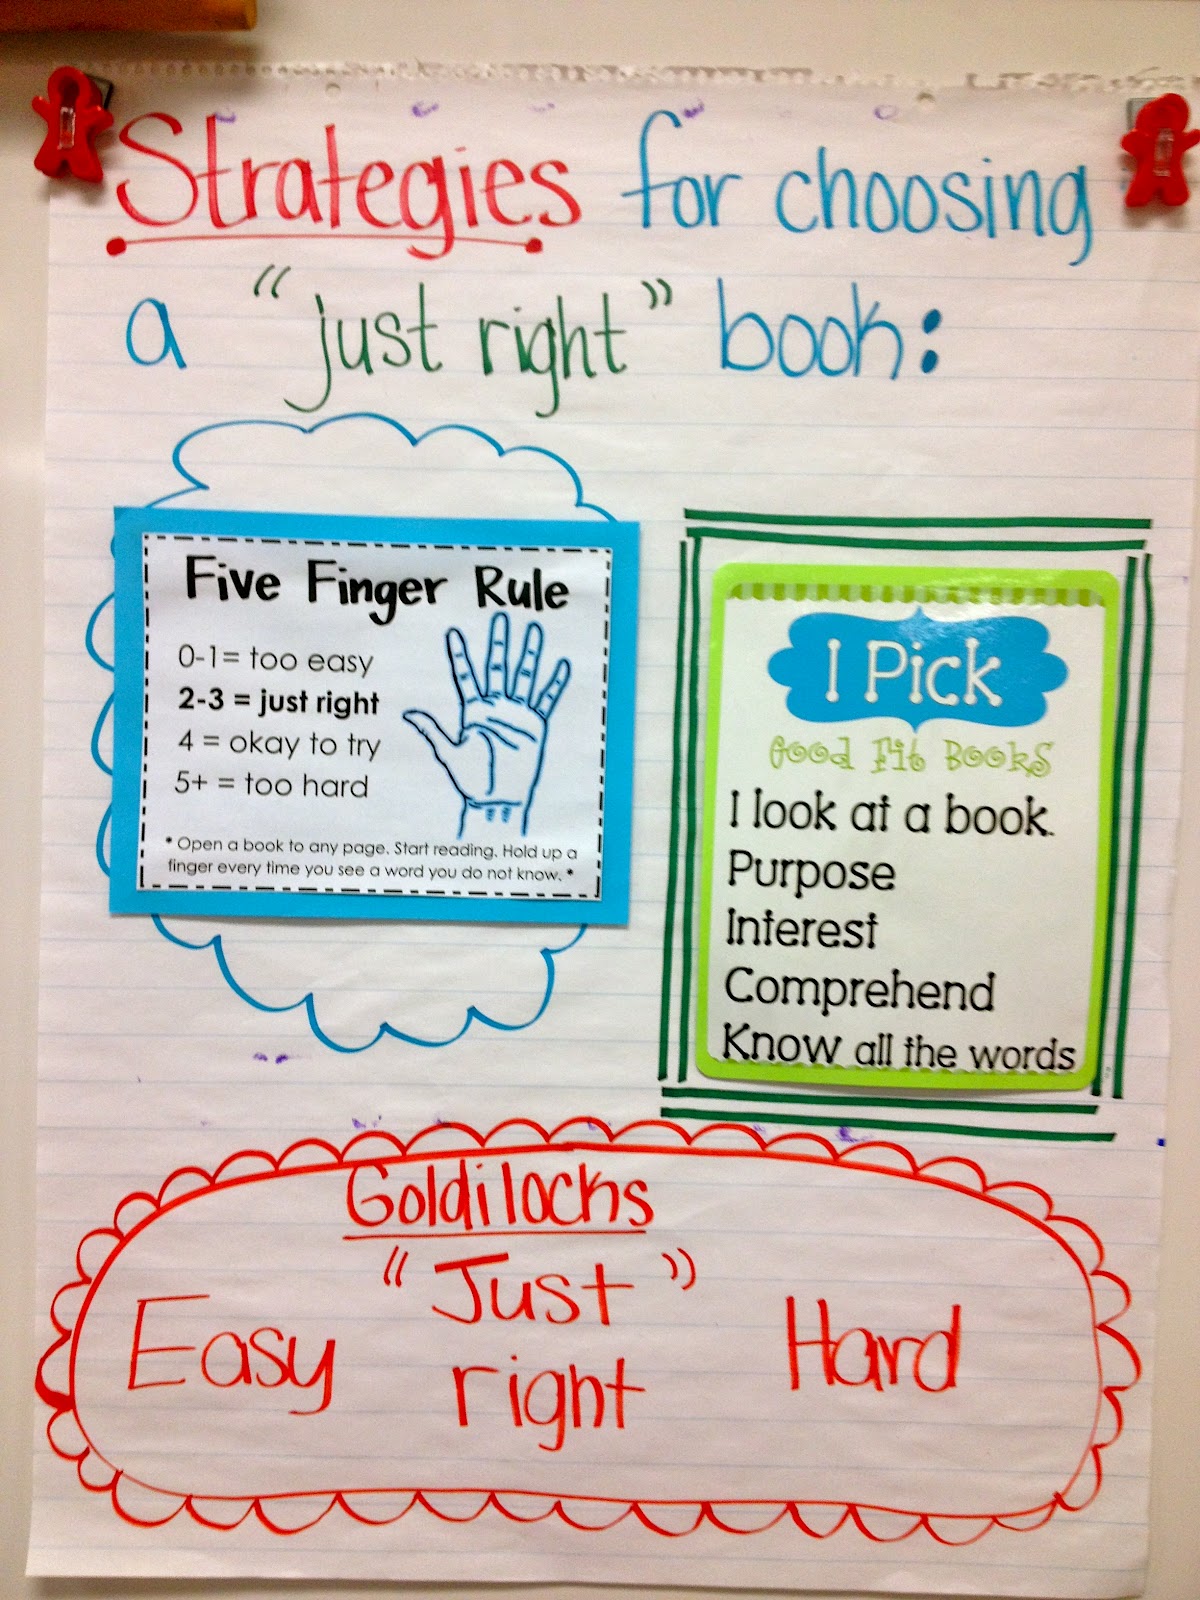 Strategies for choosing
a "just right" book:
Five Finger Rule
0-1= too easy
2-3 = just right
4 = okay to try
5+ = too hard
* Open a book to any page. Start reading. Hold up a
finger every time you see a word you do not know. *
I Pick
Good Fit Books
I look at a book.
Purpose
Interest
Comprehend
Know all the words
Goldilocks
Easy
"Just
right
"
Hard